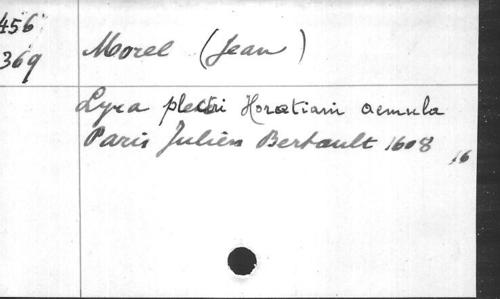 456
369
Morel (Jean)
Lyra plectri Horatiani aemula
Paris Julien Bertault 1608
16